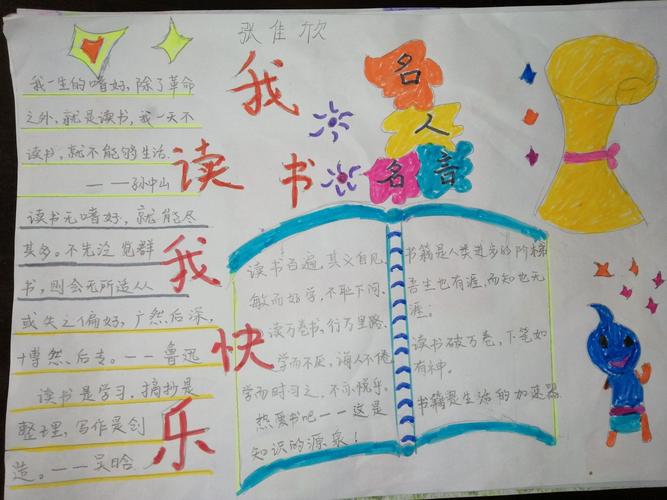 张佳欣
我读书
我快乐
名人名音
我一生的嗜好，除了革命
之外，就是读书，我一天不
读书，就不能够生活.
——孙中山
读书无嗜好，就能尽
其多。不先泛览群
书，则会无所适从
或失之偏好，广然后深，
博然后专。——鲁迅
读书是学习，摘抄是
整理，写作是创
造。——吴晗
读书百遍，其义自见
敏而好学，不耻下问.
读万卷书，行万里路.
学而不厌，诲人不倦
学而时习之，不亦悦乎.
热爱书吧——这是
知识的源泉！
书籍是人类进步的阶梯
吾生也有涯，而知也无
涯。
读书破万卷，下笔如
有神。
书籍是生活的加速器